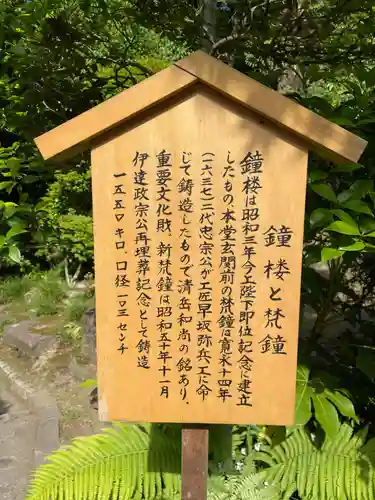 鐘楼と梵鐘
鐘楼は昭和三年今上陛下即位記念に建立
したもの、本堂玄関前の梵鐘は寛永十四年
(一六三七)二代忠宗公が工匠早坂弥兵エに命
じて鋳造したもので清岳和尚の銘あり、
重要文化財、新梵鐘は昭和五十年十一月
伊達政宗公再埋葬記念として鋳造
一五五〇キロ、口径一〇三センチ